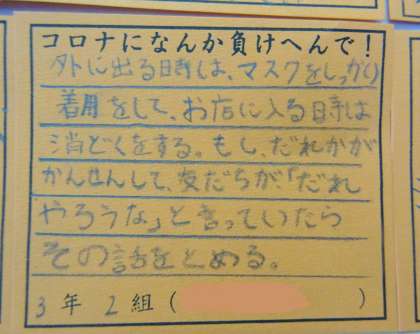 コロナになんか負けへんで！
外に出る時は、マスクをしっかり
着用をして、お店に入る時は
消どくをする。もし、だれかが
かんせんして、友だちが、「だれ
やろうな」と言っていたら
その話をとめる。
3年2組（　）